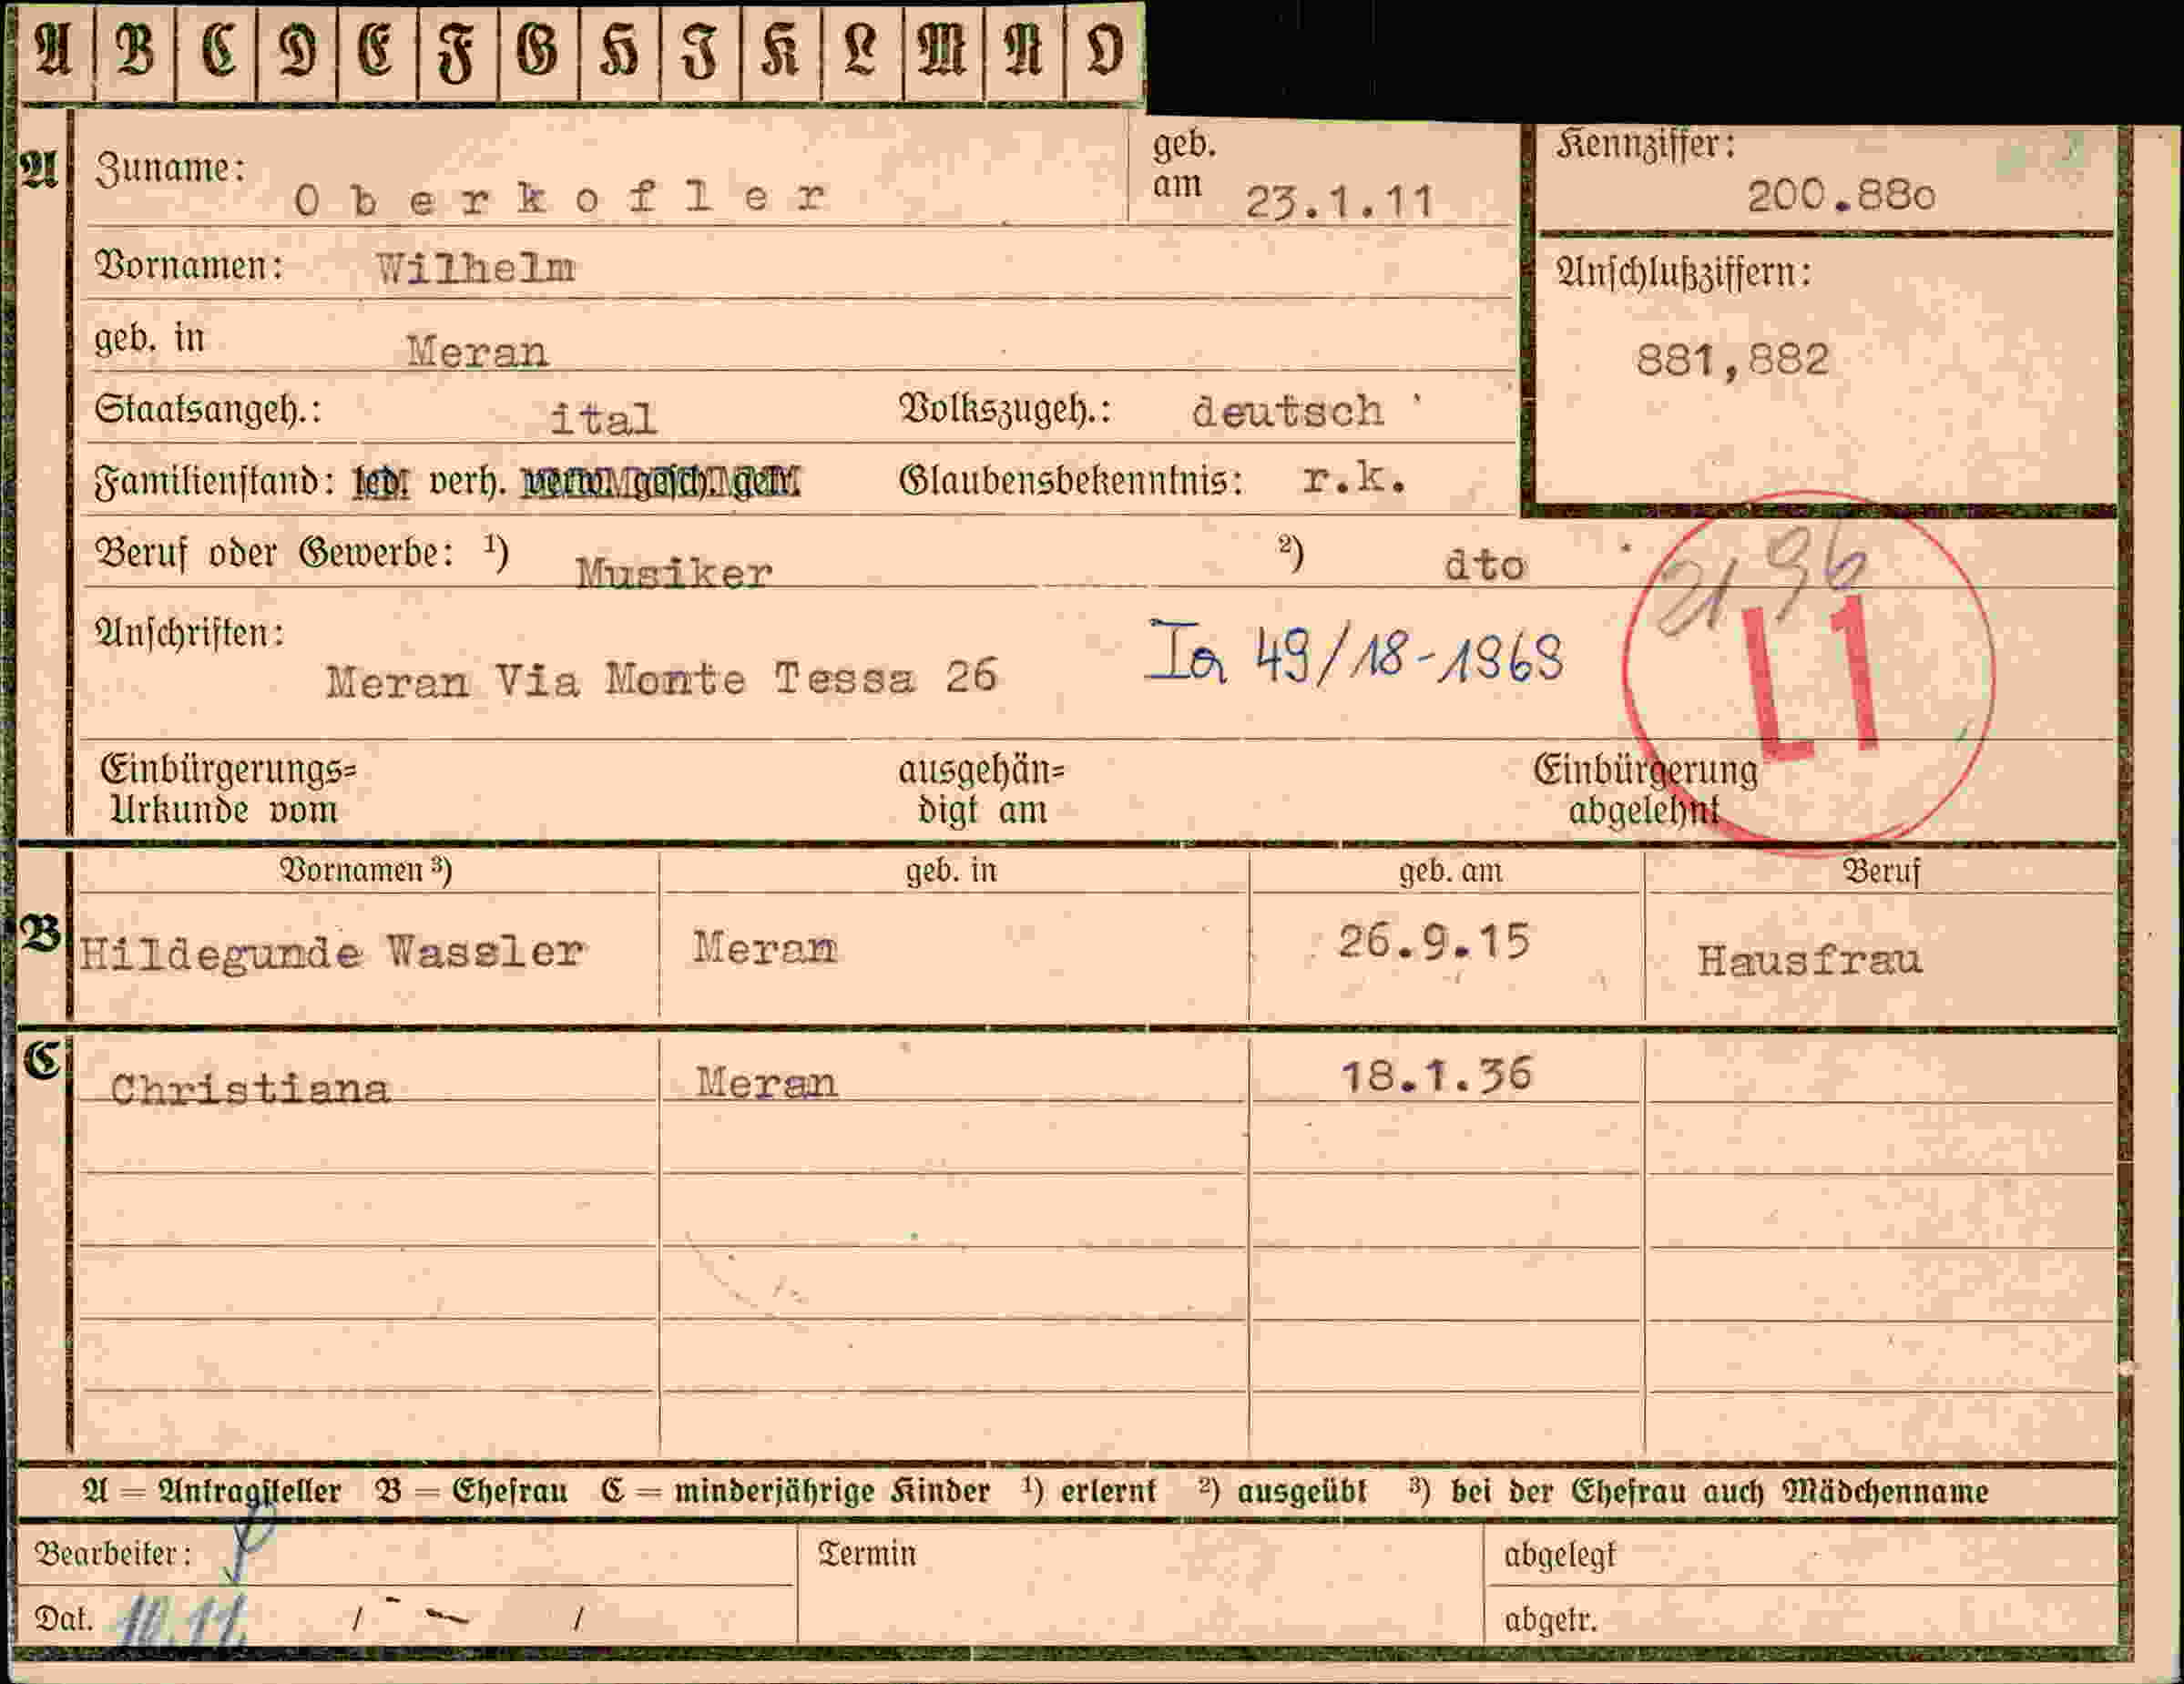 A B C D E F G H I K L M N O
A Zuname: Oberkofler geb. am 23.1.11 Kennziffer: 200.88o
Vornamen: Wilhelm Anschlußziffern:
geb. in Meran 881,882
Staatsangeh.: ital Volkszugeh.: deutsch
Familienstand: led. verh. verw. gesch. getr. Glaubensbekenntnis: r.k.
Beruf oder Gewerbe: ¹) Musiker ²) dto
2196
Anschriften: Meran Via Monte Tessa 26 Ia 49/18-1969 L1
Einbürgerungs= ausgehän= Einbürgerung
Urkunde vom digt am abgelehnt
Vornamen ³) geb. in geb. am Beruf
B Hildegunde Wassler Meran 26.9.15 Hausfrau
C Christiana Meran 18.1.36
A = Antragsteller B = Ehefrau C = minderjährige Kinder ¹) erlernt ²) ausgeübt ³) bei der Ehefrau auch Mädchenname
Bearbeiter: Termin abgelegt
Dat. abgetr.